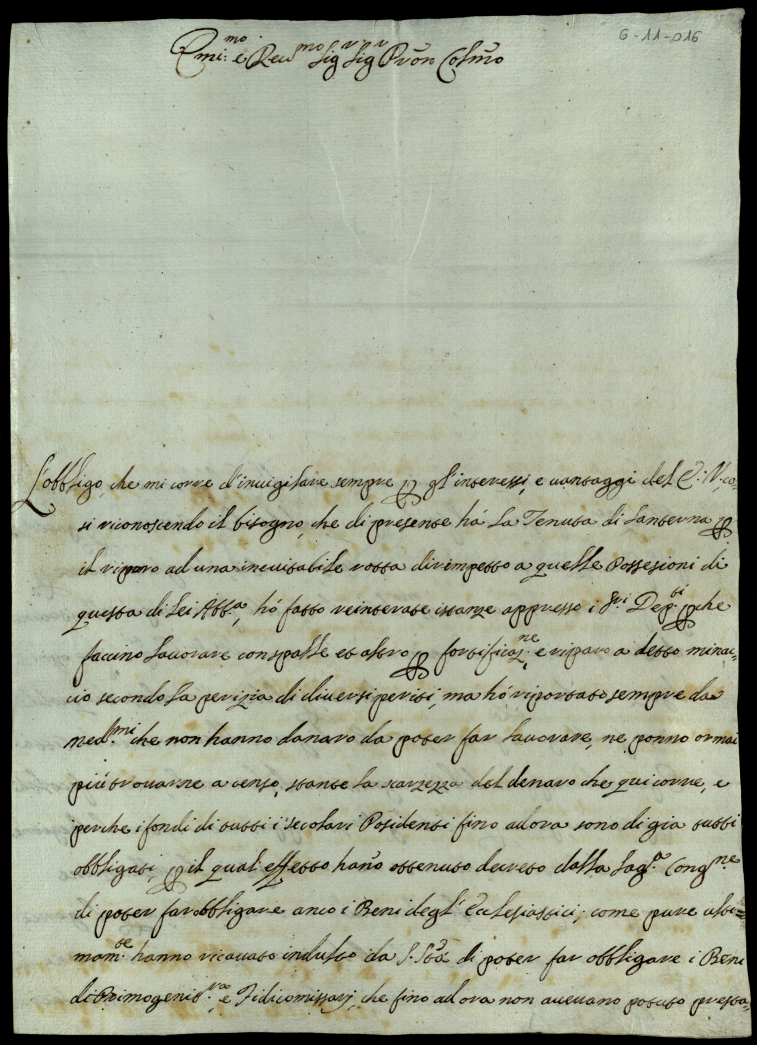 6-11-016
Emi:mo e Reu:mo Sigr Sigr Prõn Colmo
L'obbligo, che mi corre d'inuigilare sempre p gl'interessi, e uantaggi del E: V. co=
si riconoscendo il bisogno, che di presente hà la Tenuta di Lanterna p
il riparo ad una ineuitabile rotta dirimpetto a quelle Possesioni di
questa di Lei Abb.a, hò fatto reiterate istanze appresso i SS.ri Dep.ti pche
faccino lauorare con spalle et altro p fortificaz.ne, e riparo a detto minac=
cio secondo la perizia di diuersi periti, ma hò riportato sempre da
med.mi che non hanno danaro da poter far lauorare, ne ponno ormai
più trouarne a censo, stante la scarzezza del denaro che qui corre, e
perche i fondi di tutti i secolari Posidenti fino ad ora sono di gia tutti
obbligati, p il qual'effetto hano ottenuto decreto dalla Sag.a Cong.ne
di poter far obbligare anco i Beni degl'Ecclesiastici; come pure ulti=
mam.te hanno ricauato indulto da S. Stà di poter far obbligare i Beni
di Primogenit.ra e Fidicomissarj, che fino ad ora non aueuano potuto presta=